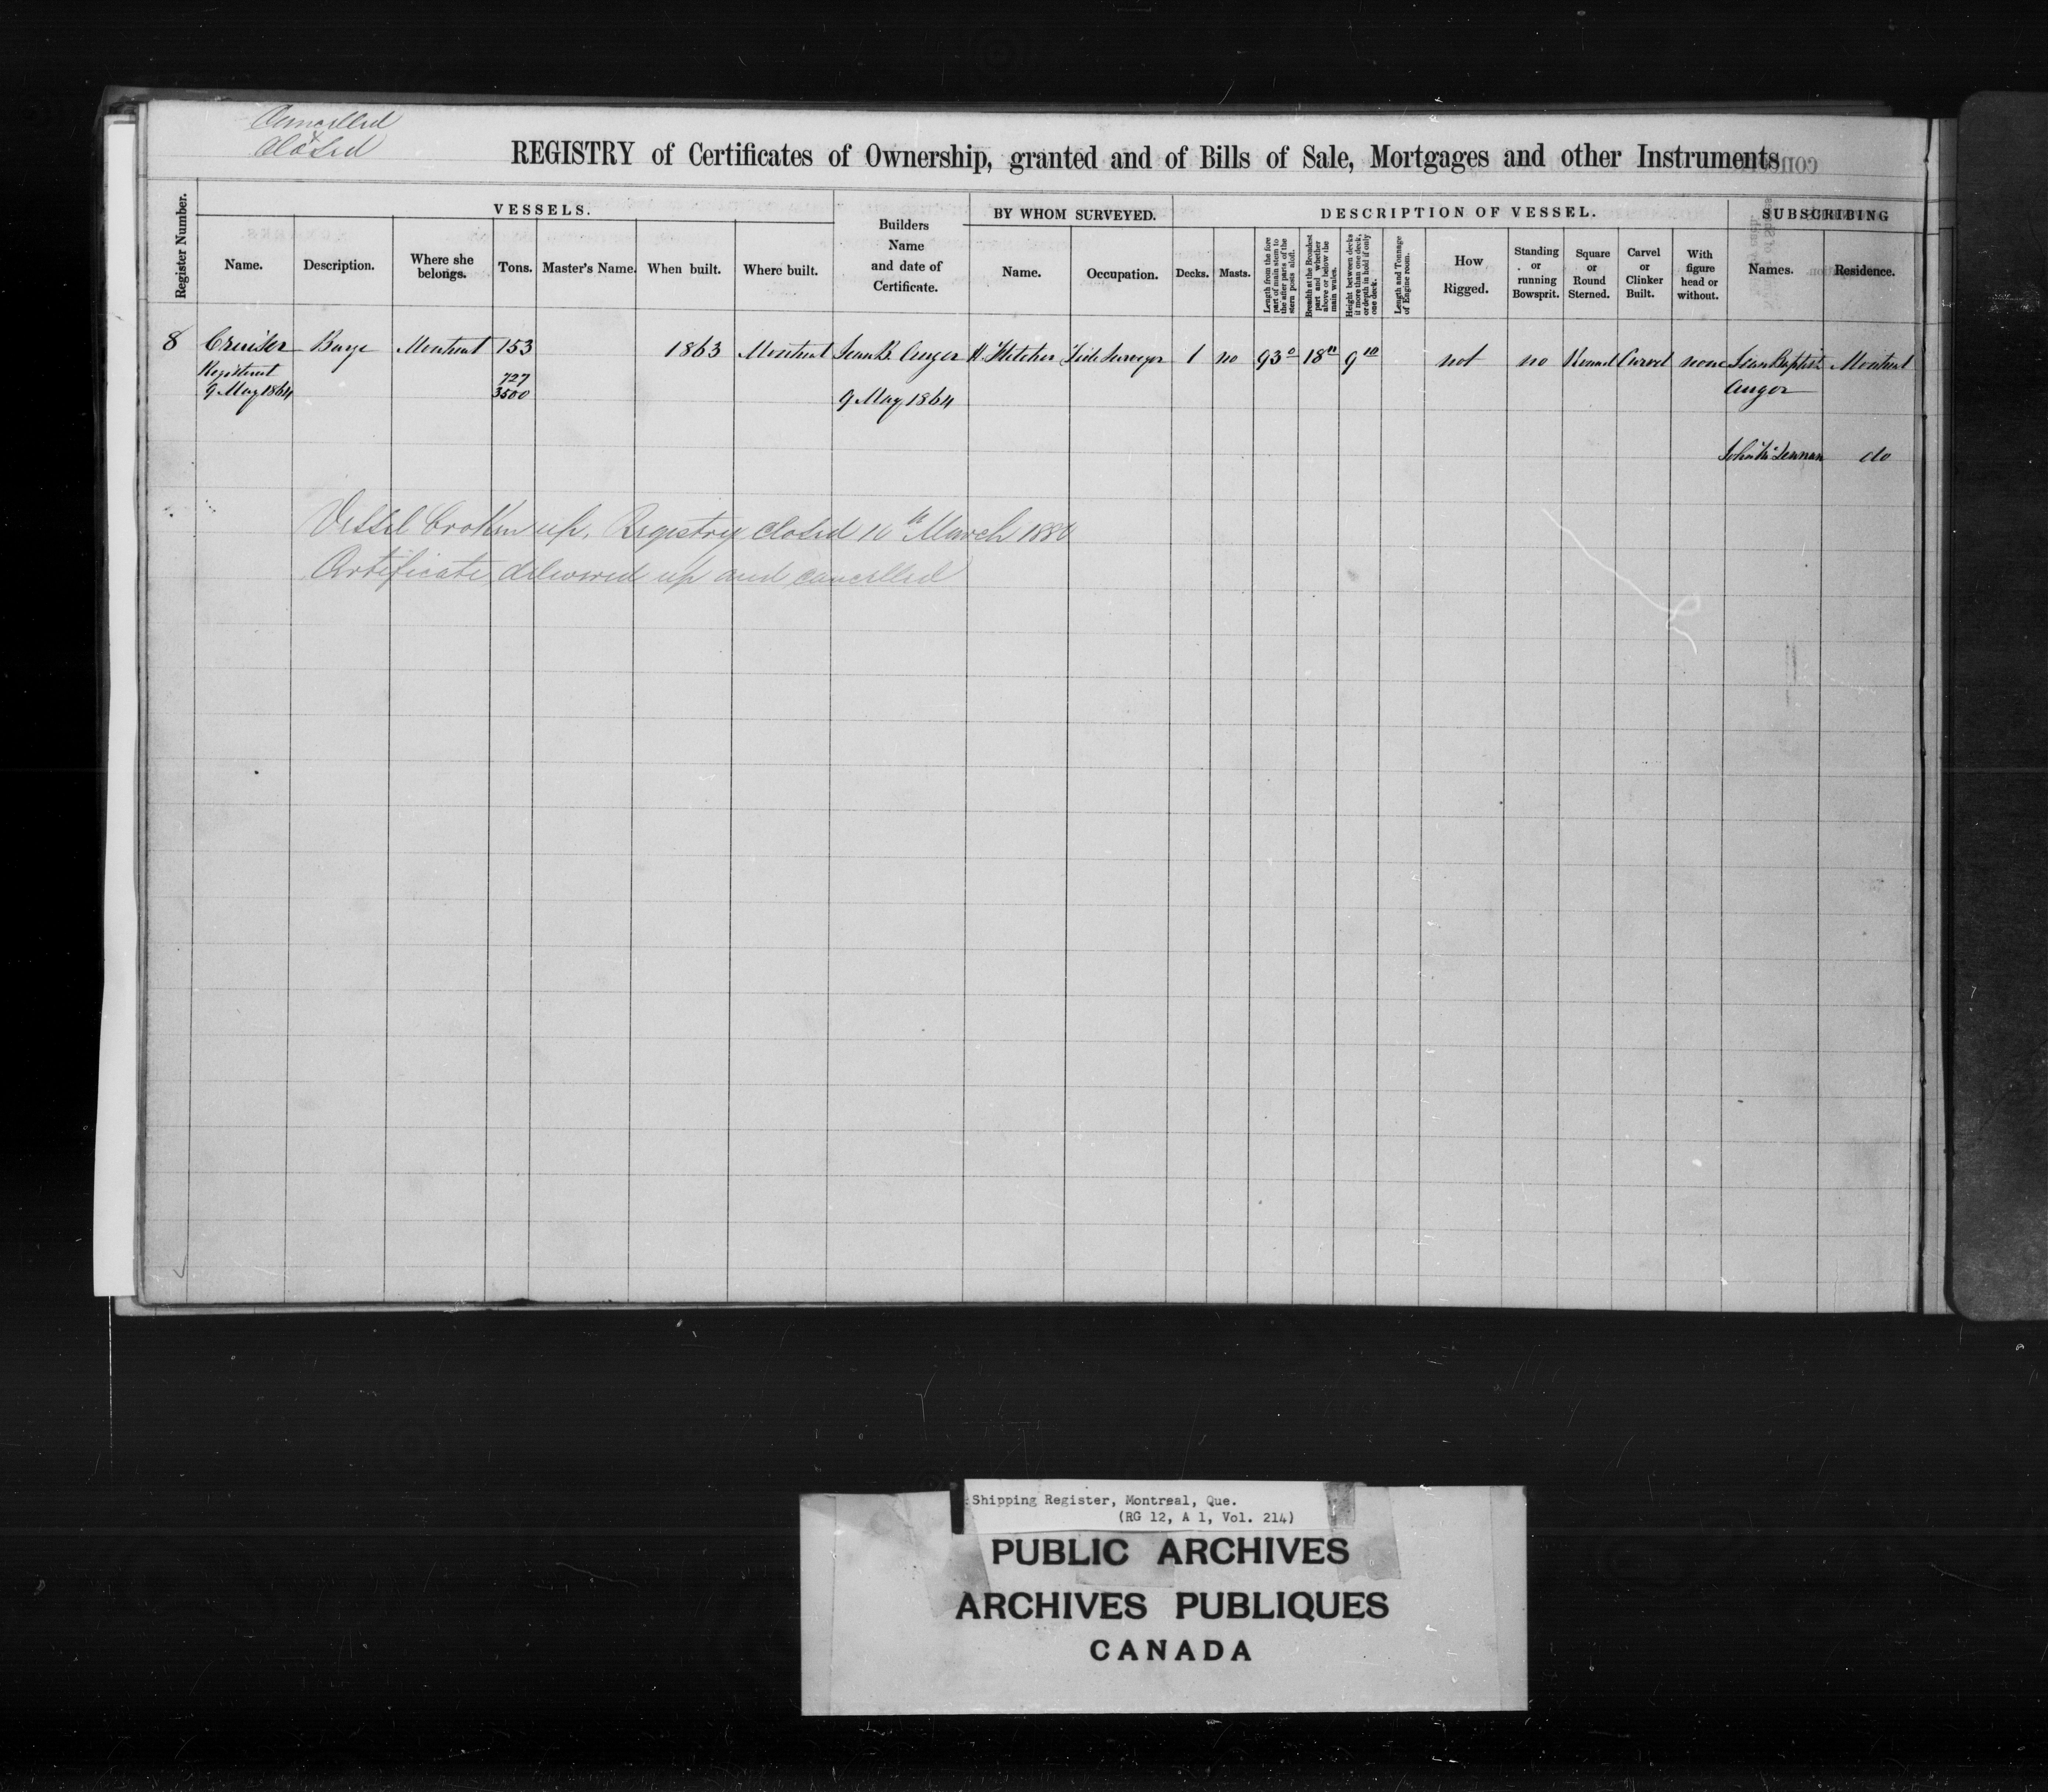 Cancelled
&
Closed
REGISTRY of Certificates of Ownership, granted and of Bills of Sale, Mortgages and other Instruments
Register Number.
VESSELS.
Builders Name and date of Certificate.
BY WHOM SURVEYED.
DESCRIPTION OF VESSEL.
SUBSCRIBING
Name.
Description.
Where she belongs.
Tons.
Master's Name.
When built.
Where built.
Name.
Occupation.
Decks.
Masts.
Length from the fore part of main stem to the after parts of the stern posts aloft.
Breadth at the Broadest part and whether above or below the main wales.
Height between decks if more than one deck, or depth in hold if only one deck.
Length and Tonnage of Engine room.
How Rigged.
Standing or running Bowsprit.
Square or Round Sterned.
Carvel or Clinker Built.
With figure head or without.
Names.
Residence.
8 Cruiser Barge Montreal 153 1863 Montreal Jean B. Auger H Fletcher Tide Surveyor 1 no 93 0 18 11 9 10 not no Round Carvel none Jean Baptist Montreal
Registered 727
9 May 1864 3500 9 May 1864 Auger
John do
Vessel broken up. Registry closed March
Certificate delivered up and cancelled
Shipping Register, Montreal, Que.
(RG 12, A 1, Vol. 214)
PUBLIC ARCHIVES
ARCHIVES PUBLIQUES
CANADA